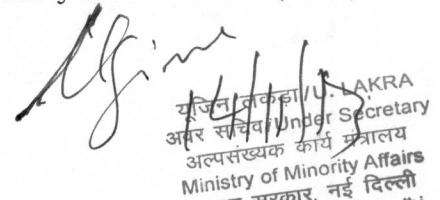 यूजिन लकड़ा/U. LAKRA
अवर सचिव/Under Secretary
अल्पसंख्यक कार्य मंत्रालय
Ministry of Minority Affairs
सरकार, नई दिल्ली